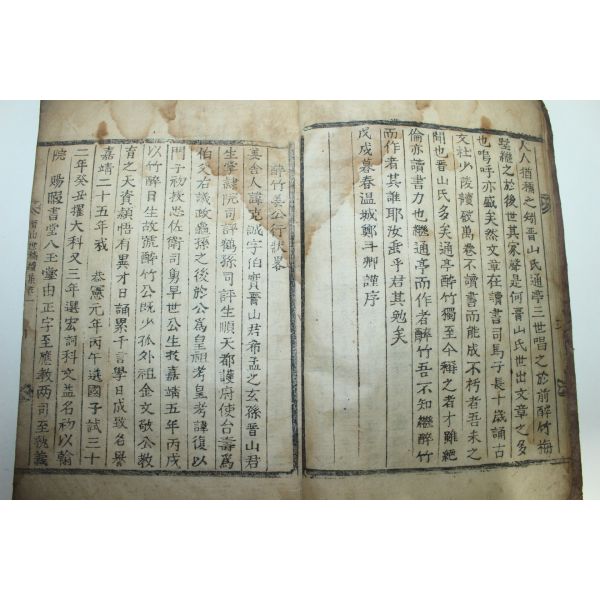 人人猶稱之矧晉山氏通亭三世唱之於前醉竹梅
墅繼之於後世其家聲是何晉山氏世出文章之多
也嗚呼亦盛矣然文章在讀書司馬子長十歲誦古
文杜少陵讀破萬卷不讀書而能成不朽者吾未之
聞也晉山氏多矣通亭醉竹獨至今稱之者才雖絶
倫亦讀書力也繼通亭而作者醉竹吾不知繼醉竹
而作者其誰耶汝垂乎君其勉矣
戊戌暮春溫城鄭斗卿謹序
醉竹姜公行狀畧
姜舍人諱克誠字伯實晉山君希孟之玄孫晉山君
生掌隷院司評鶴孫司評生順天都護府使台壽爲
伯父右議政龜孫之後於公爲皇祖考皇考諱復以
門子初授忠佐衛司勇早世公生於嘉靖五年丙戌
以竹醉日生故號醉竹公旣少孤外祖金文敬公敎
育之天資穎悟有異才日誦累千言學日成致名譽
嘉靖二十五年我 恭憲元年丙午選國子試三十
二年癸丑擢大科又三年選宏詞科文益名初以翰
院 賜暇書堂八玉堂由正字至應敎兩司至執義
晉山世稿續集卷